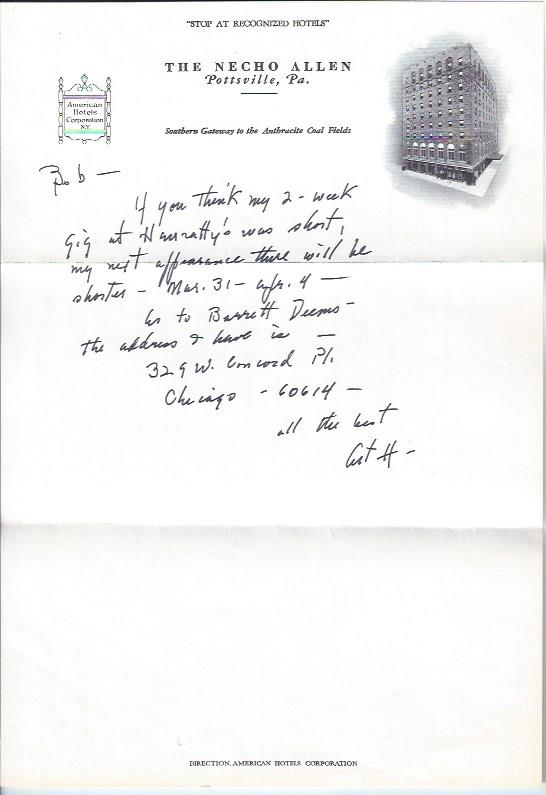 "STOP AT RECOGNIZED HOTELS"
THE NECHO ALLEN
Pottsville, Pa.
American
Hotels
Corporation
N.Y.
Southern Gateway to the Anthracite Coal Fields
Bob —
If you think my 2-week
gig at Hanratty's was short,
my next appearance there will be
shorter — Mar. 31 — Apr. 4 —
As to Barrett Deems —
the address I have is —
329 W. Concord Pl.
Chicago - 60614 —
all the best
Art H —
DIRECTION, AMERICAN HOTELS CORPORATION